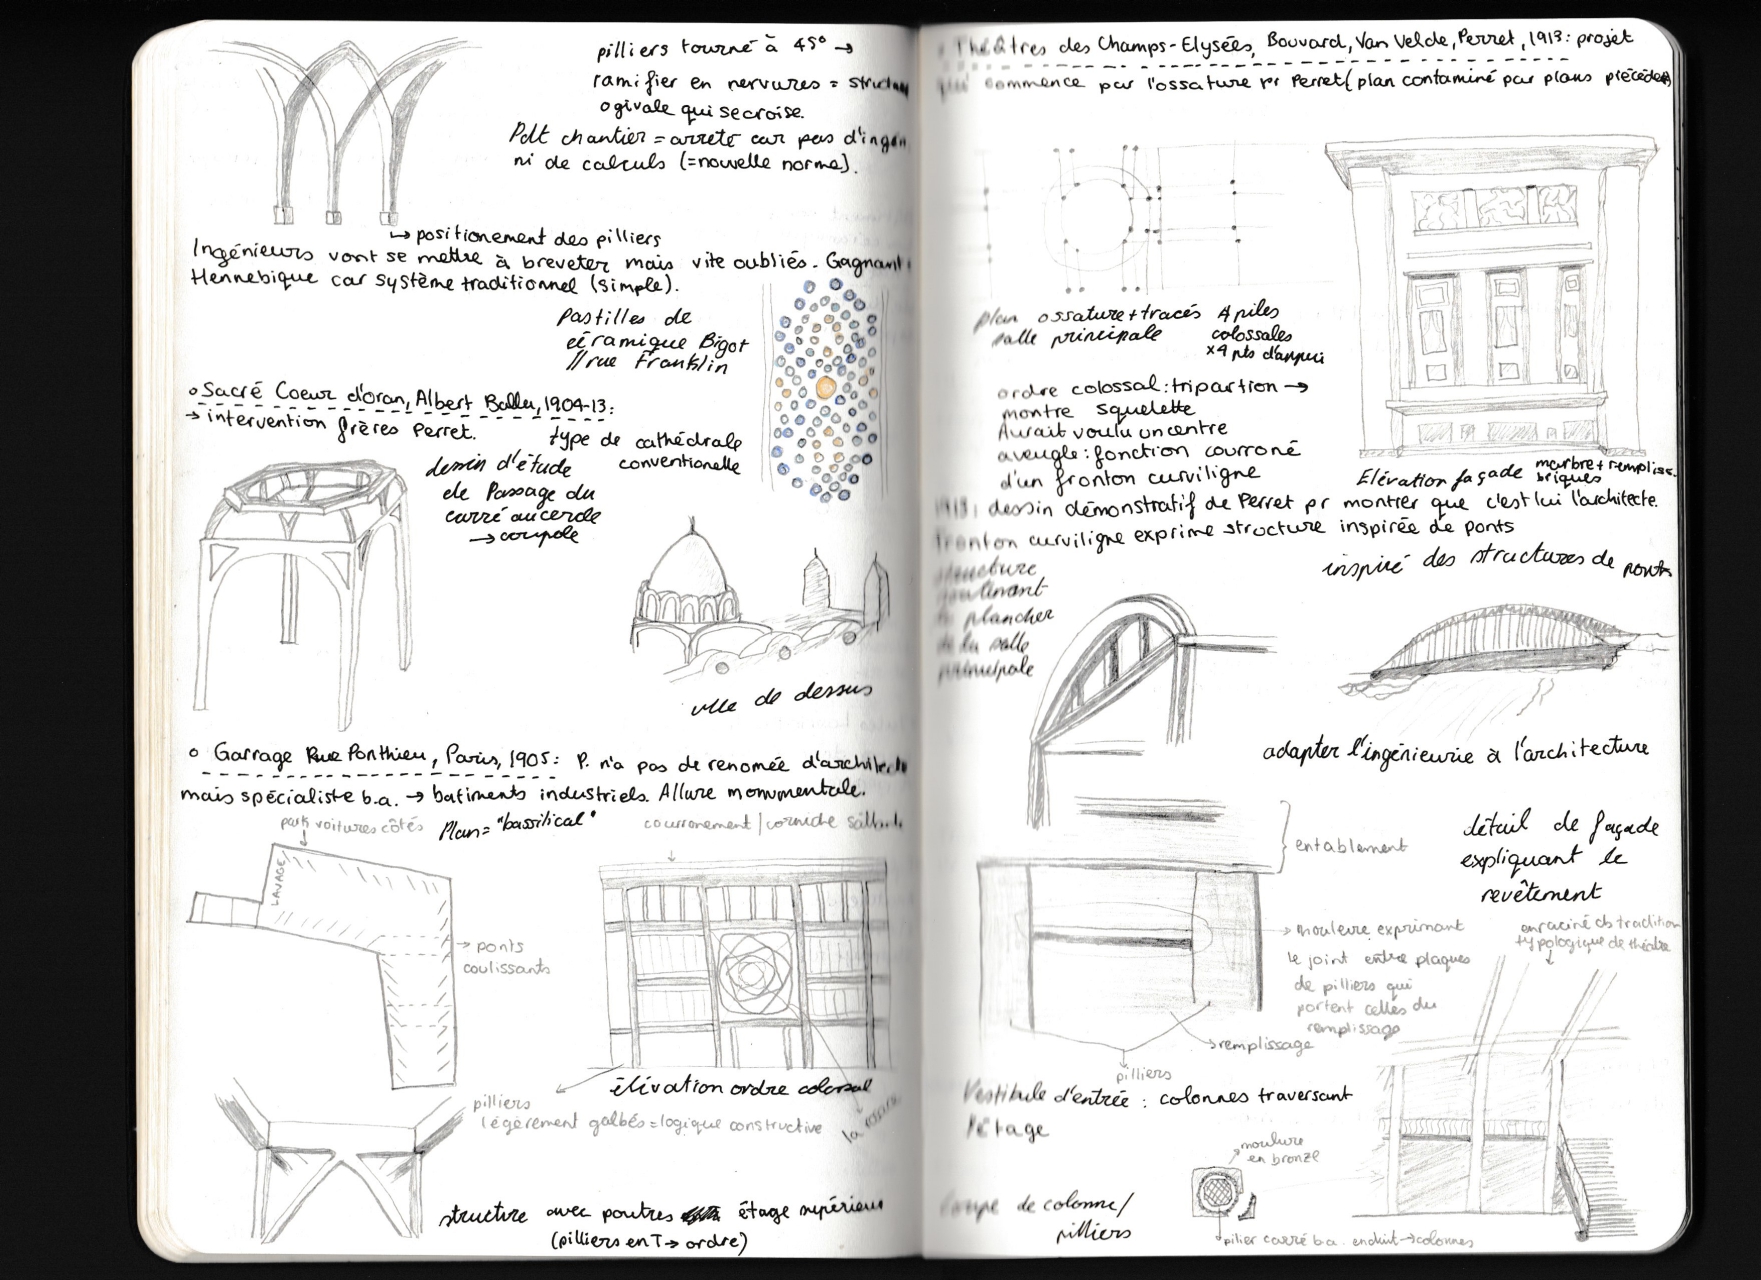 pilliers tourné à 45° →
ramifier en nervures = structure
ogivale qui se croise.
Pdt chantier = arreté car pas d'ingén
ni de calculs (=nouvelle norme).
↳ positionement des pilliers
Ingénieurs vont se mettre à breveter mais vite oubliés. Gagnant:
Hennebique car système traditionnel (simple).
Pastilles de
céramique Bigot
//rue Franklin
o Sacré Coeur d'oran, Albert Ballu, 1904-13:
→ intervention frères Perret.
type de cathédrale
conventionelle
dessin d'étude
de Passage du
carré au cercle
→ coupole
vue de dessus
o Garrage Rue Ponthieu, Paris, 1905: P. n'a pas de renomée d'architecte
mais spécialiste b.a. → batiments industriels. Allure monumentale.
park voitures côtés
Plan = "bassilical"
couronement / corniche saillante
LAVAGE
→ ponts
coulissants
élévation ordre colossal
pilliers
légèrement galbés = logique constructive
la rosace
structure avec poutres étage supérieur
(pilliers en T → ordre)
Théâtres des Champs-Elysées, Bouvard, Van Velde, Perret, 1913: projet
qui commence par l'ossature pr Perret (plan contaminé par plans précédents)
plan ossature + tracés
salle principale
4 piles
colossales
x4 pts d'appui
ordre colossal: tripartion →
montre squelette
Aurait voulu un centre
aveugle: fonction courroné
d'un fronton curviligne
Elévation façade
marbre + rempliss.
briques
1913: dessin démonstratif de Perret pr montrer que c'est lui l'architecte.
Fronton curviligne exprime structure inspirée de ponts
inspiré des structures de ponts
structure
soutenant
le plancher
de la salle
principale
adapter l'ingénieurie à l'architecture
entablement
détail de façade
expliquant le
revêtement
→ moulure exprimant
le joint entre plaques
de pilliers qui
portent celles du
remplissage
enraciné ds tradition
typologique de théâtre
→ remplissage
pilliers
Vestibule d'entrée: colonnes traversant
l'étage
moulure
en bronze
Coupe de colonne/
pilliers
pilier carré b.a. enduit → colonnes